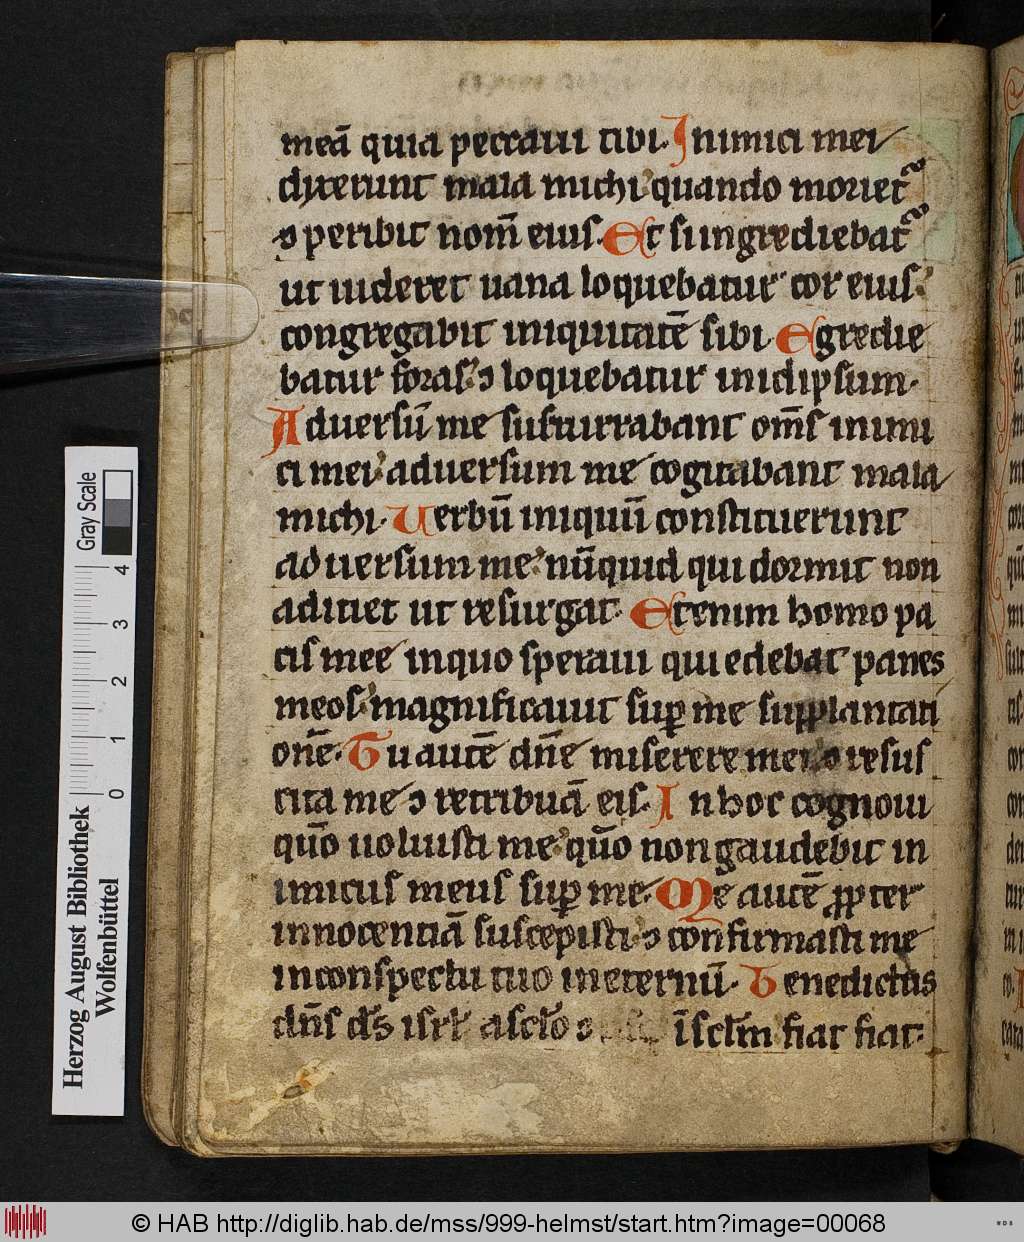 meā quia peccaui tibi. Inimici mei
dixerunt mala michi quando moriet᷑
⁊ peribit nom̄ eius. Et si ingrediebat᷑
ut uideret uana loquebatur cor eius
congregabit iniquitatē sibi. Egredie
batur foras ⁊ loquebatur inidipsum.
Aduersū me susurrabant om̄s inimi
ci mei aduersum me cogitabant mala
michi. Uerbū iniquū constituerunt
aduersum me nūquid qui dormit non
adiciet ut resurgat. Etenim homo pa
cis mee inquo speraui qui edebat panes
meos magnificauit suꝑ me supplantati
onē. Tu autē dn̄e miserere mei ⁊ resus
cita me ⁊ retribuā eis. In hoc cognoui
quō uoluisti me quō non gaudebit in
imicus meus suꝑ me. Me autē ꝓpter
innocentiā suscepisti ⁊ confirmasti me
inconspectu tuo ineternū. Benedictus
dn̄s ds̄ isrl̄ asclo ⁊ īsclm̄ fiat fiat.
Gray Scale
4
3
2
1
0
Herzog August Bibliothek
Wolfenbüttel
© HAB http://diglib.hab.de/mss/999-helmst/start.htm?image=00068